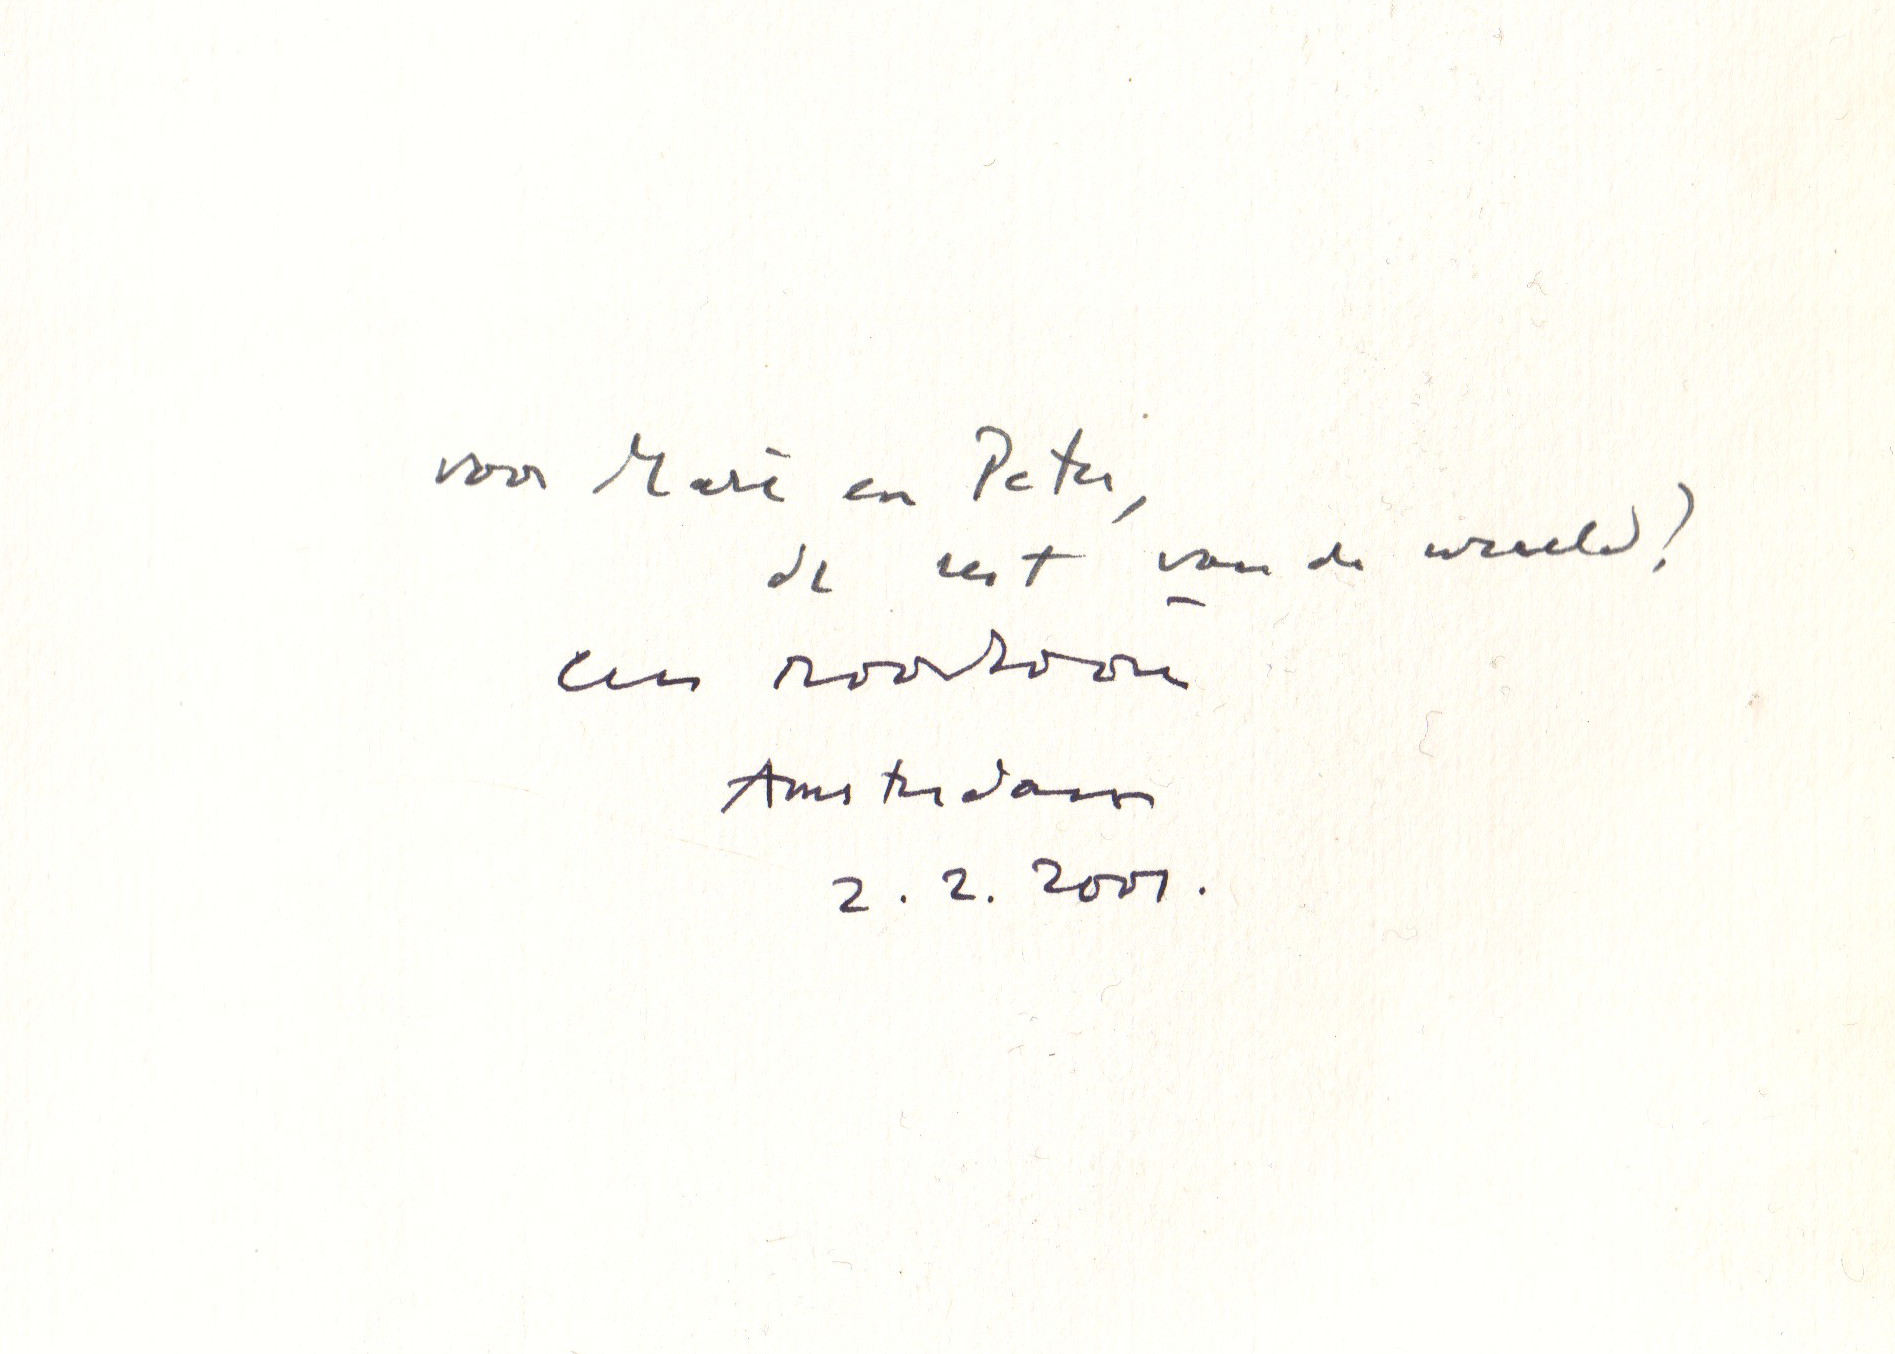 voor Marè en Peter,
de rest van de wereld!
cees nooteboom
Amsterdam
2.2.2001.